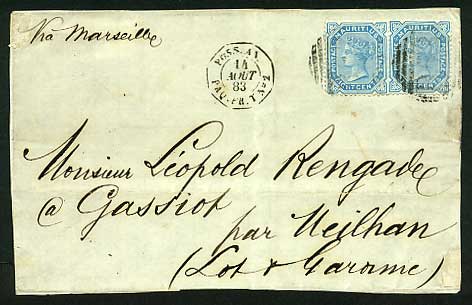 Via Marseille
POSS. AN
14
AOUT
83
PAQ. FR. T No 2
MAURITIUS MAURITIUS
POSTAGE
Monsieur Léopold Rengade
à Gassiot
par Meilhan
(Lot & Garonne)